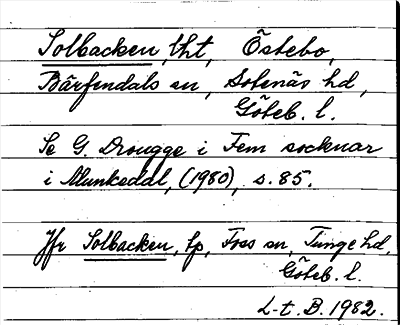 Solbacken, tht, Östebo,
Bärfendals sn, Sotenäs hd,
Göteb. l.
Se G. Drougge i Fem socknar
i Munkedal, (1980), s. 85.
Jfr Solbacken, lp, Foss sn, Tunge hd,
Göteb. l.
L-t. B. 1982.